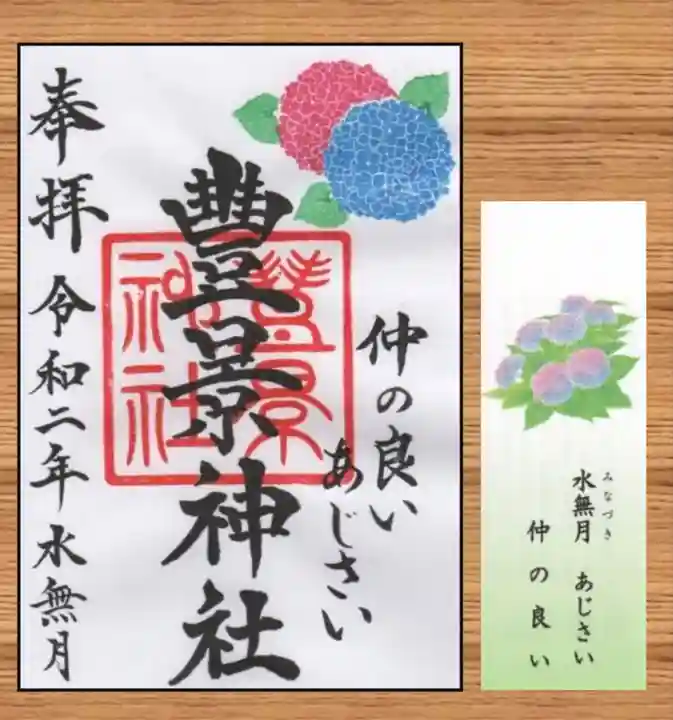 仲の良い
あじさい
豊景神社
豊景
神社
奉拝 令和二年 水無月
水無月 あじさい
みなづき
仲の良い